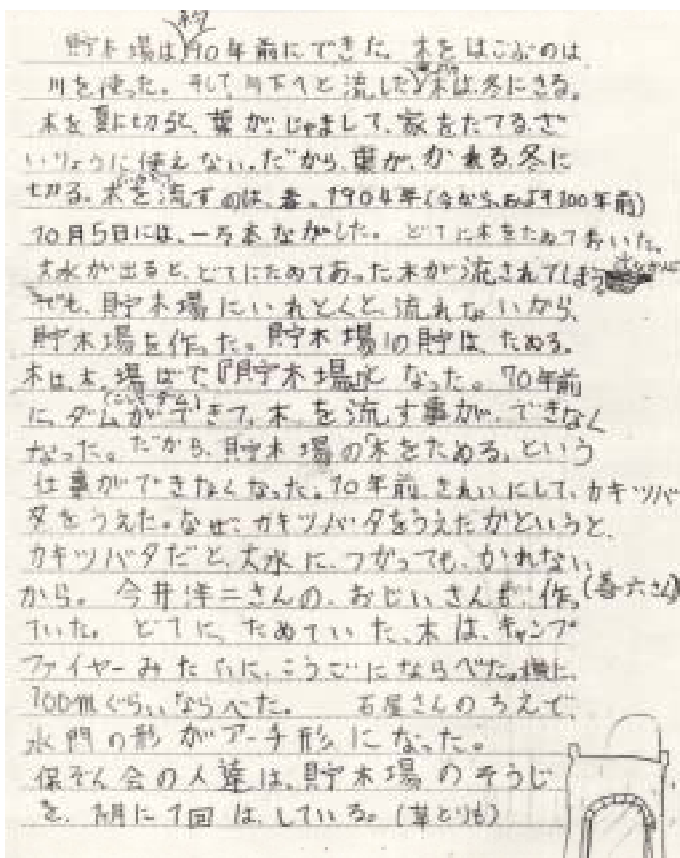 約
貯木場は90年前にできた。木をはこぶのは
川を使った。そして川下へと流した。木は、冬にきる。
木を夏に切ると、葉が、じゃまして、家をたてるざ
いりょうに使えない。だから、葉が、かれる、冬に
切る。木を流すのは、春。1904年(今から、およそ100年前)
10月5日には、一万本ながした。どてに木をためておいた。
大水が出ると、どてにためてあった木が流されてしまう
でも、貯木場にいれとくと、流れないから、
貯木場を作った。貯木場の貯は、ためる。
木は、木。場はばで、『貯木場』となった。70年前
に、ダムができて、木を流す事が、できなく
なった。だから、貯木場の「木をためる」という
仕事ができなくなった。10年前、きれいにして、カキツバ
タをうえた。なぜ、カキツバタをうえたかというと、
カキツバタだと、大水に、つかっても、かれない
から。今井洋二さんの、おじいさんも、作っ(善六さん)
ていた。どてに、ためていた、木は、キャンプ
ファイヤーみたいに、こうごにならべた。
100mぐらいならべた。 石屋さんのちえで、
水門の形がアーチ形になった。
保ぞん会の人達は、貯木場のそうじ
を、1月に1回は、している。(草とりも)